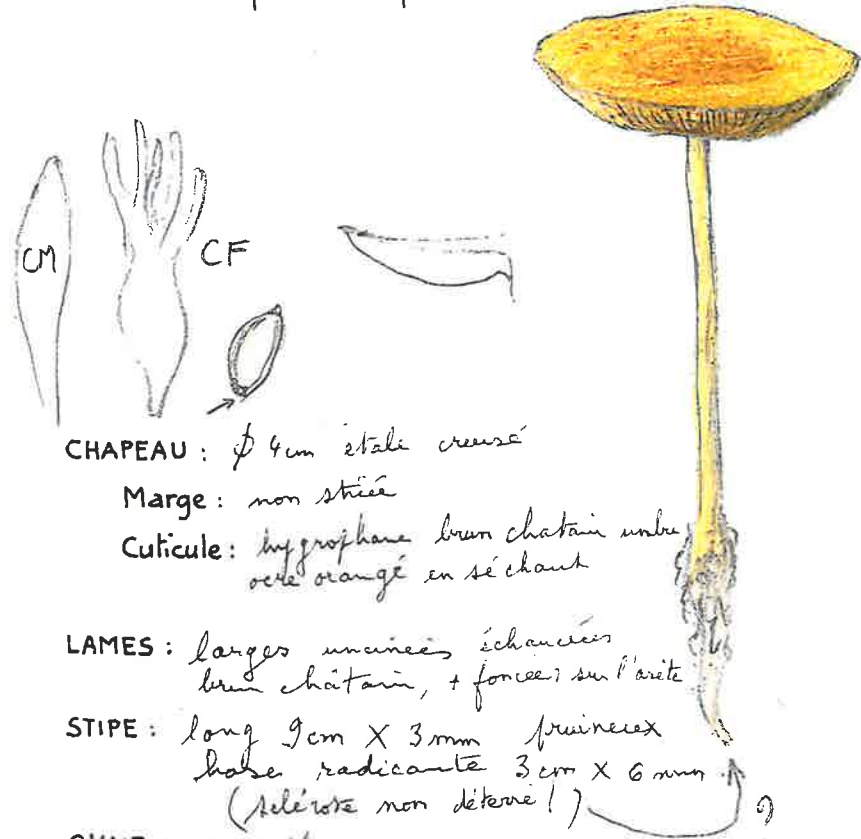 CM
CF
CHAPEAU : ϕ 4cm étalé creusé
Marge : non striée
Cuticule : hygrophane brun chatain umbre
ocre orangé en séchant
LAMES : larges uncinées échancrées
brun châtain, + foncées sur l'arête
STIPE : long 9cm X 3mm pruineux
base radicante 3cm X 6mm
(sclérote non déterré !) ?